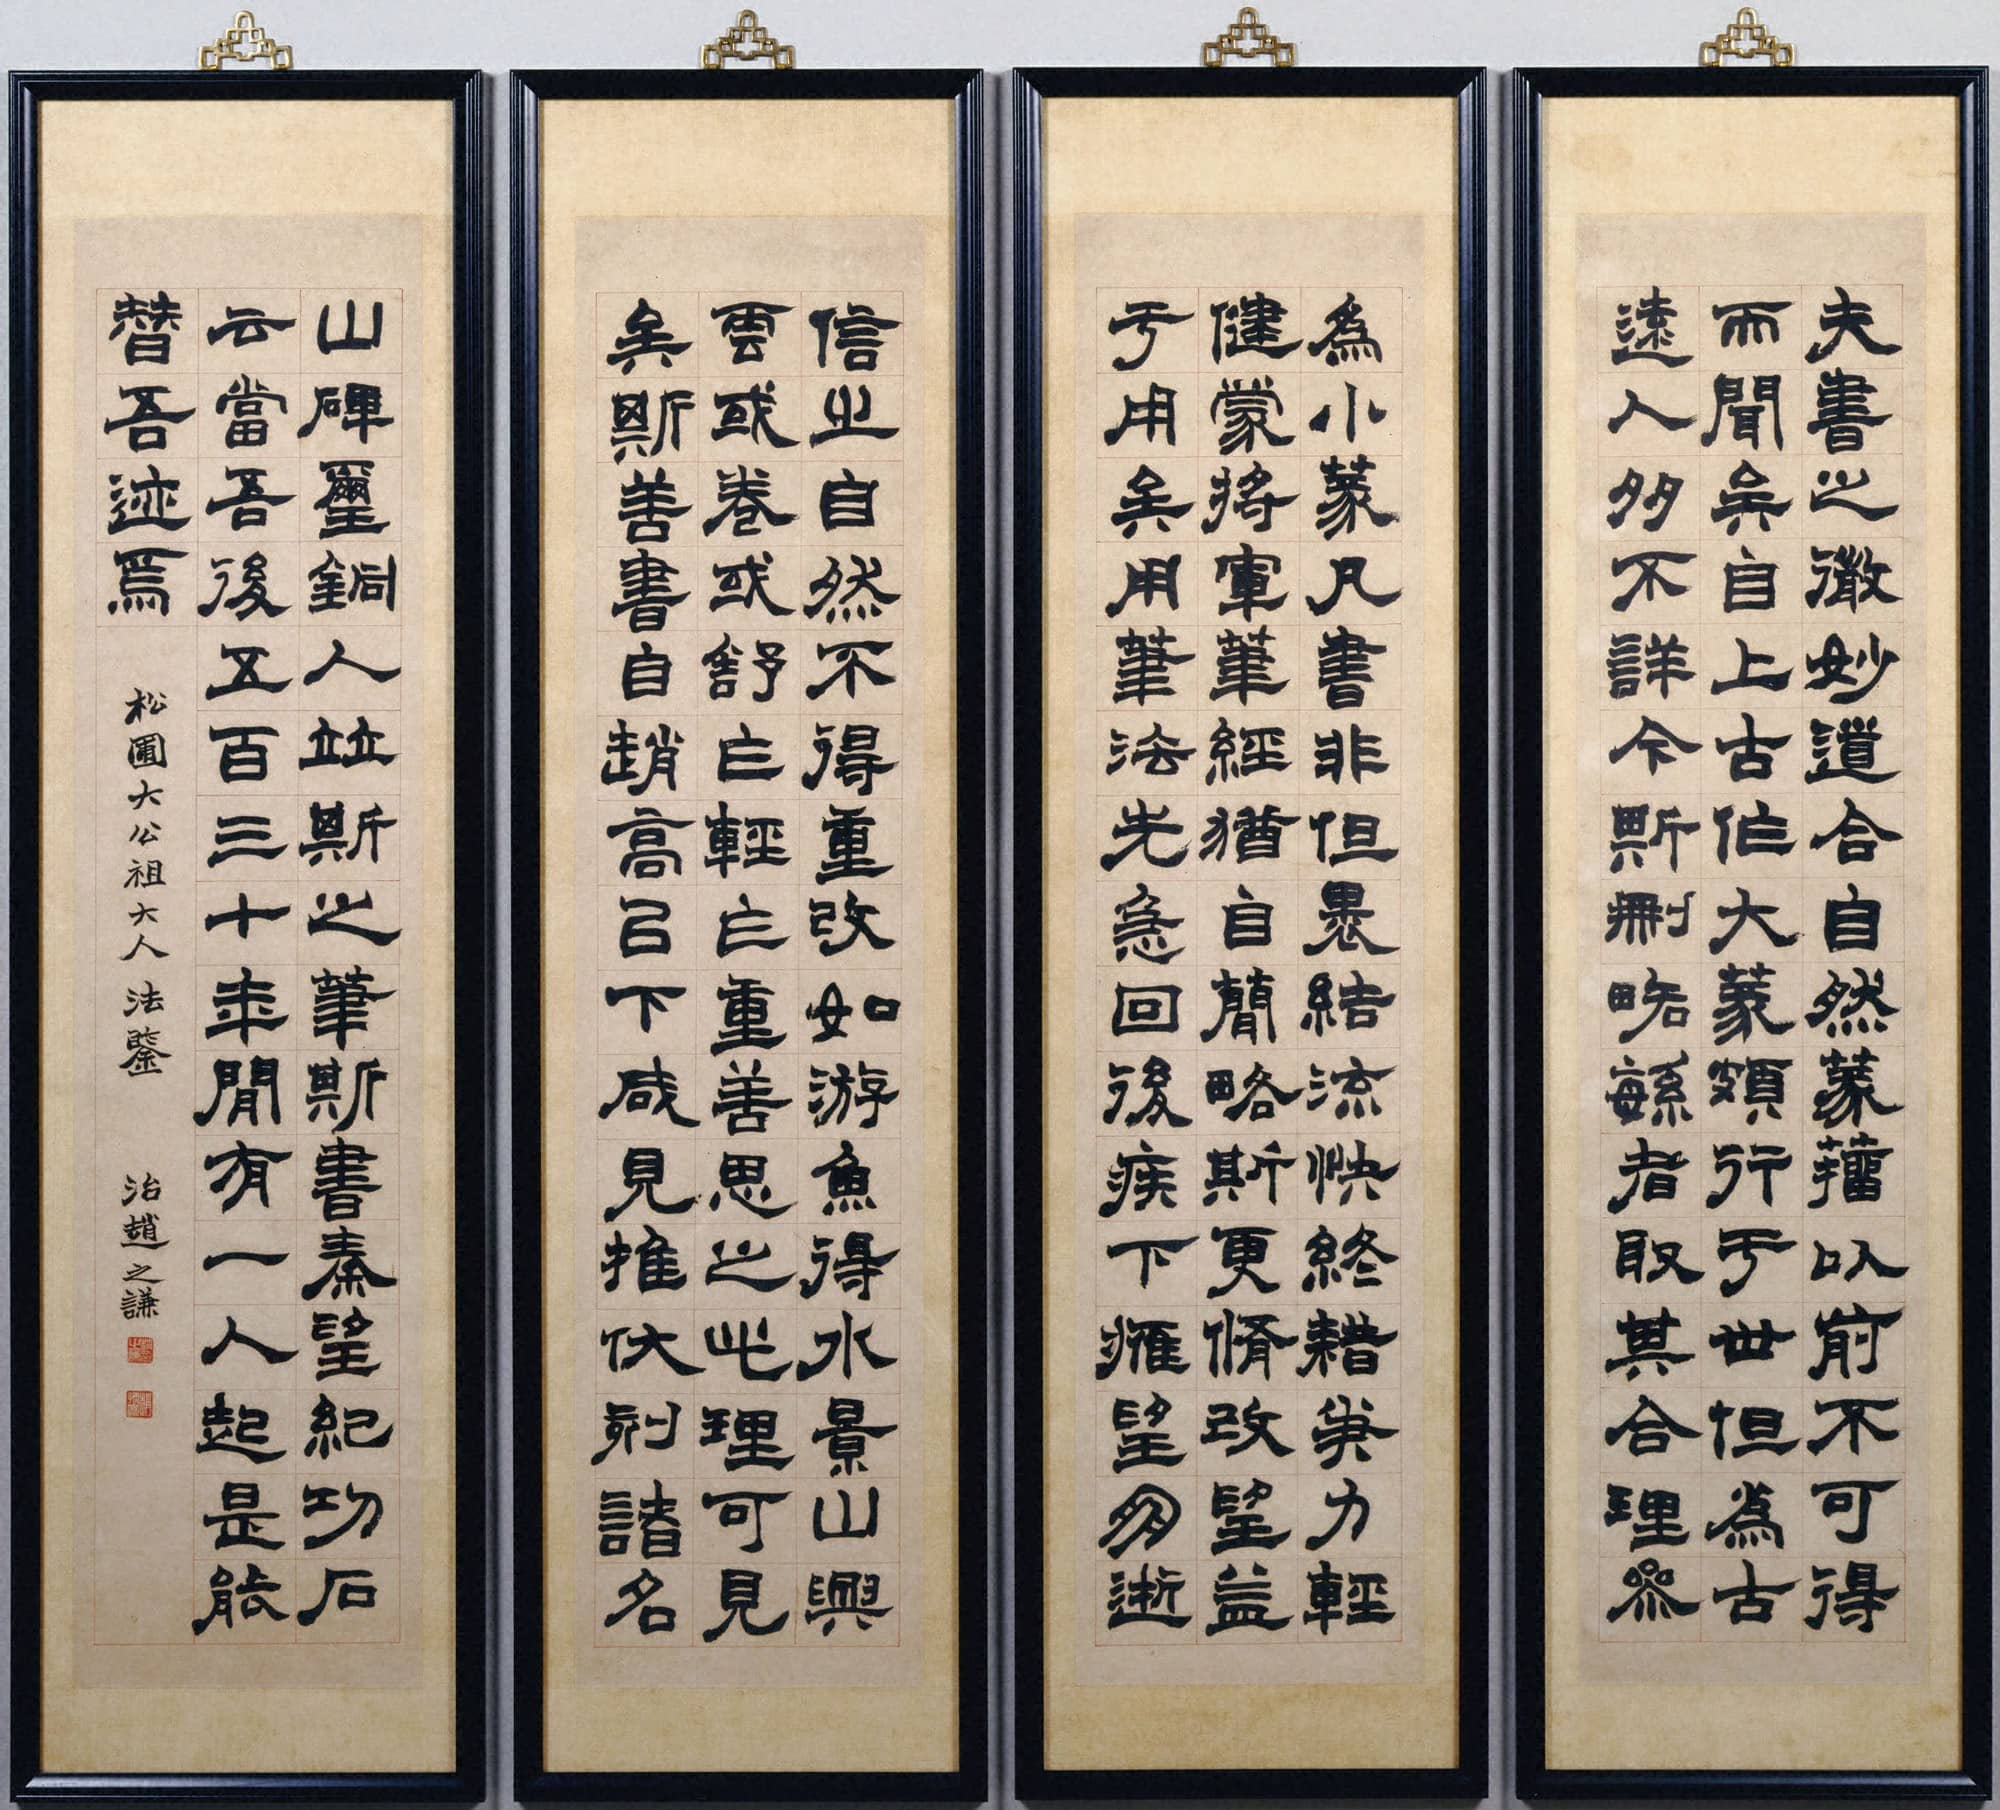 夫書之微妙道合自然篆籀以前不可得
而聞矣自上古作大篆頗行于世但為古
遠人多不詳今斯刪略緐者取其合理參
為小篆凡書非但裹結流快終藉力輕
健蒙將軍筆經猶自簡略斯更脩改望益
于用矣用筆法先急回後疾下鷹望朋逝
信之自然不得重改如游魚得水景山興
雲或卷或舒乍輕乍重善思之此理可見
矣斯善書自趙高以下咸見推伏刻諸名
山碑璽銅人竝斯之筆斯書秦望紀功石
云當吾後五百三十年閒有一人起是能
替吾迹焉
松圃大公祖大人法鑒
治趙之謙